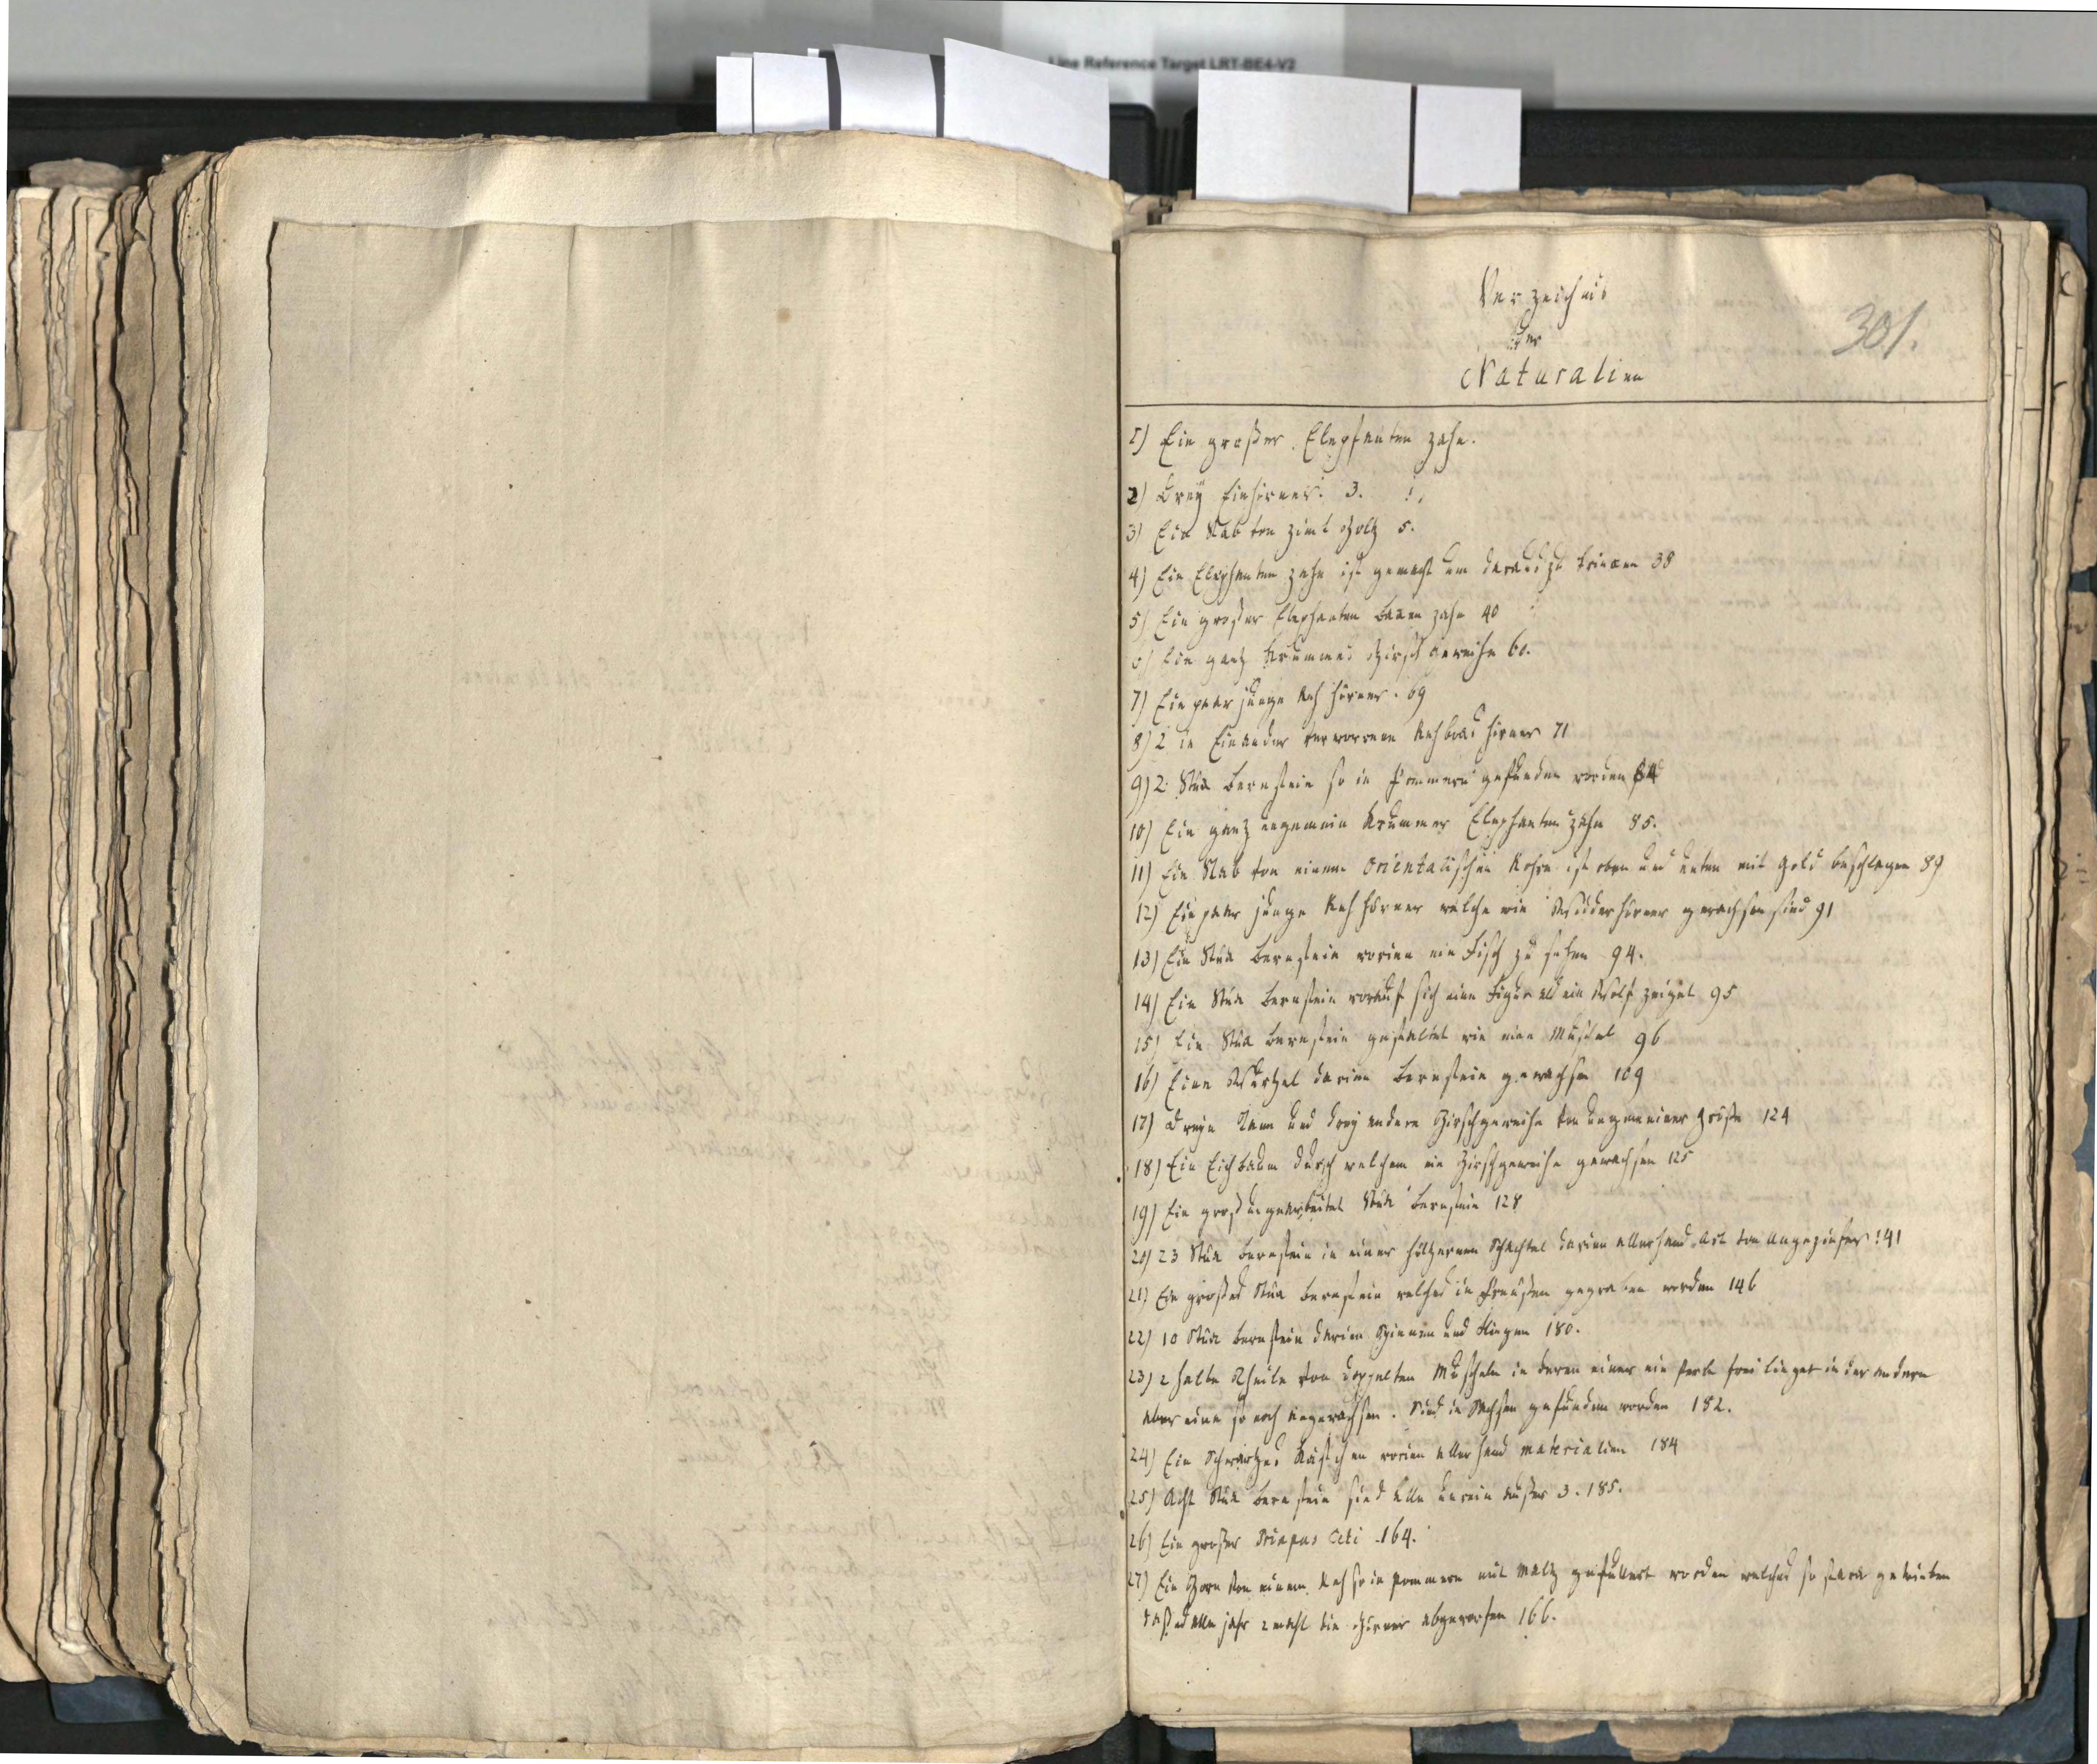 Line Reference Target LRT-BE4-V2
Verzeichnis
der
Naturalien
301.
1) Ein großer Elepfanten zahn.
2) Dreÿ Einhörner. 3.
3) Ein Stab von Zimt Holtz 5.
4) Ein Elephanten zahn ist gemacht um daraus zu trincken 38
5) Ein großer Elephanten Backen zahn 40
6) Ein gantz krummes Hirsch Geweihe 60.
7) Ein paar junge Reh Hörner. 69
8) 2 in Einander verworrene Rehbocks Hörner 71
9) 2 Stück Bernstein so in Pommern gefunden worden 84
10) Ein ganz ungemein krummer Elephanten Zahn 85.
11) Ein Stab von einem Orientalischen Rohre ist oben und unten mit Gold beschlagen 89
12) Ein paar junge Reh Hörner welche wie Widderhörner gewachsen sind 91
13) Ein Stück Bernstein worinn ein Fisch zu sehen 94.
14) Ein Stück Bernstein worauf sich eine Figur als ein Wolf zeiget 95
15) Ein Stück Bernstein gestaltet wie eine Muschel 96
16) Eine Wurtzel darinn Bernstein gewachsen 109
17) Dreÿe Dann und dreÿ andere Hirschgeweihe von ungemeiner Größe 124
18) Ein Eichbaum durch welchem ein Hirschgeweihe gewachsen 125
19) Ein groß ungearbeitet Stück Bernstein 128
20) 23 Stück Bernstein in einer höltzernen Schachtel darinn allerhand Art von Ungeziefer 141
21) Ein großes Stück Bernstein welches in Preußen gegraben worden 146
22) 10 Stück Bernstein darinn Spinnen und Fliegen 180.
23) 2 halbe Theile von doppelten Muscheln in deren einer ein Perle frei lieget in der andern
aber eine so noch angewachsen. Sind in Sachsen gefunden worden 182.
24) Ein Schwartzes Kästchen worinn allerhand materialien 184
25) Acht Stück Bernstein sind alle unrein außer 3. 185.
26) Ein großer Priapus Ceti 164.
27) Ein Horn von einem Reh so in Pommern mit Maltz gefuttert worden welches so starck getrieben
daß es alle jahr 2 mahl die Hörner abgeworfen 166.